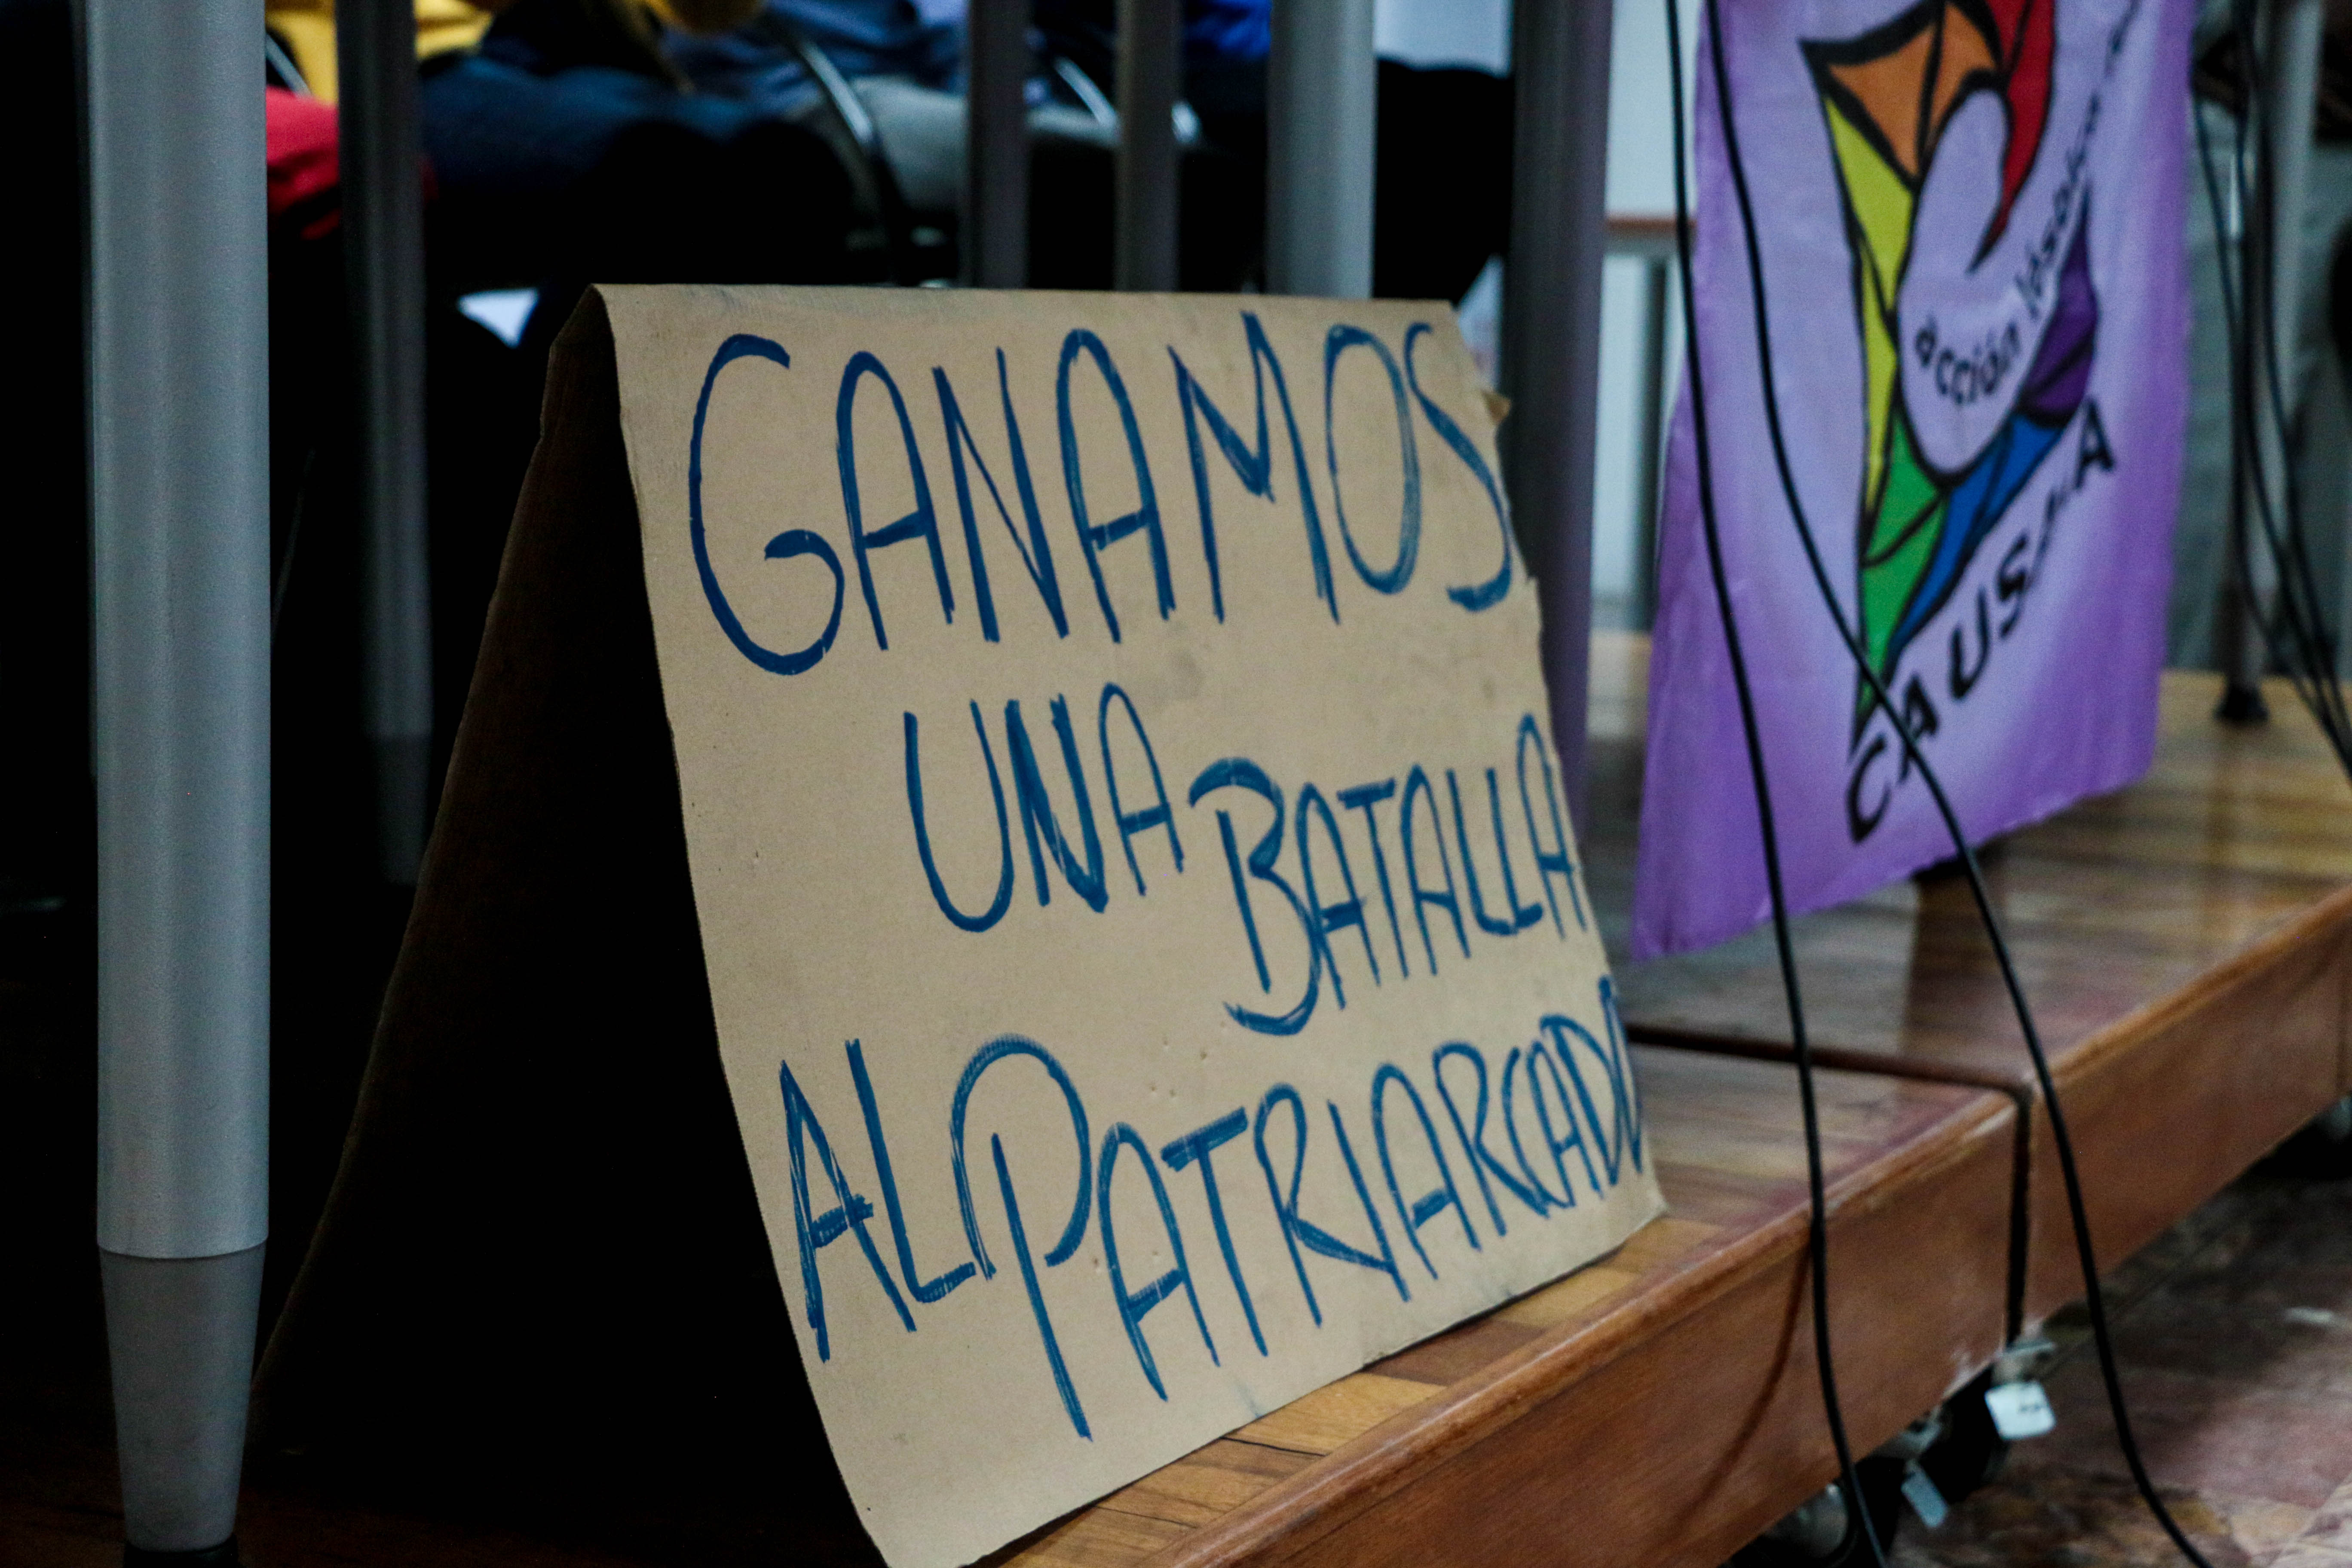 GANAMOS
UNA BATALLA
AL PATRIARCADO
acción
CAUSANA